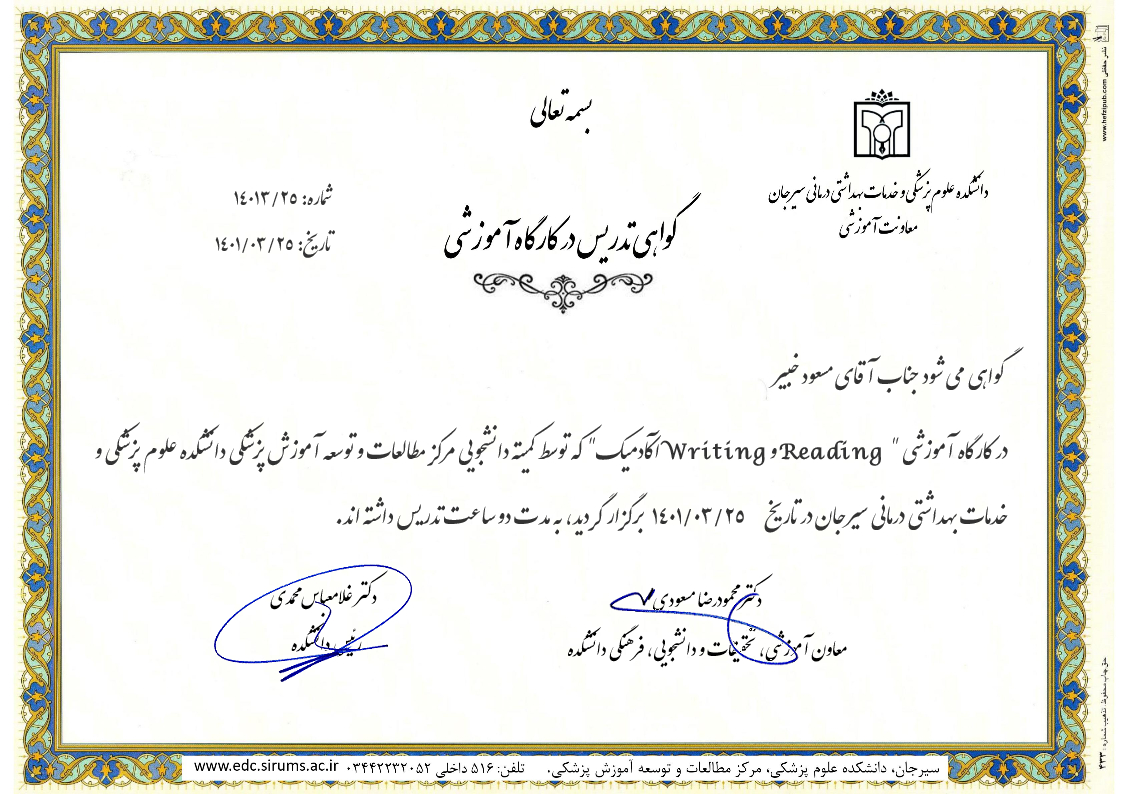 بسمه تعالی
دانشکده علوم پزشکی و خدمات بهداشتی درمانی سیرجان
معاونت آموزشی
شماره: ۱۴۰۱۳/۲۵
تاریخ: ۱۴۰۱/۰۳/۲۵
گواهی تدریس در کارگاه آموزشی
گواهی می شود جناب آقای مسعود خبیر
در کارگاه آموزشی " Reading و Writing آکادمیک" که توسط کمیته دانشجویی مرکز مطالعات و توسعه آموزش پزشکی دانشکده علوم پزشکی و
خدمات بهداشتی درمانی سیرجان در تاریخ ۱۴۰۱/۰۳/۲۵ برگزار گردید، به مدت دو ساعت تدریس داشته اند.
دکتر محمودرضا مسعودی
معاون آموزشی، تحقیقات و دانشجویی، فرهنگی دانشکده
دکتر غلامعباس محمدی
رئیس دانشکده
سیرجان، دانشکده علوم پزشکی، مرکز مطالعات و توسعه آموزش پزشکی. تلفن: ۵۱۶ داخلی ۰۳۴۴۲۲۳۲۰۵۲ www.edc.sirums.ac.ir
نشر حفظی www.hefzipub.com
حق چاپ محفوظ. تذهیب شماره: ۴۳۳